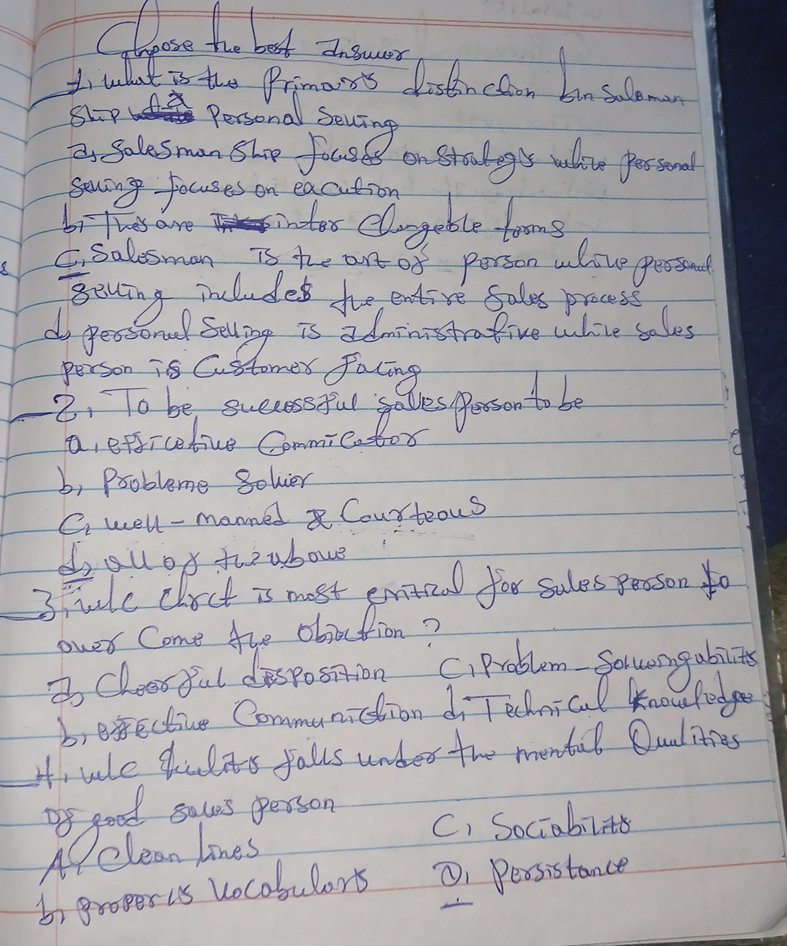 Choose the best Answer
1, what is the Primary distinction b/n Salesman
Ship Personal Selling
a, Salesman Ship focuses on Strategis while personal
Selling focuses on eacution
b, They are inter Changeble terms
C, Salesman is the art of person while personal
Selling includes the entire Sales process
d, personal Selling is administrative while sales
person is Customer facing
2, To be, successful sales person to be
a, efficetive Commicator
b, Probleme Solvier
C, well-manned & Courteous
d, all of the above
3, w/c Chrct is most critical for sales person to
over Come the Obiection ?
a, Cheerful disposition C, Problem-Solvingability
b, effective Communiction d, Technical knowledge
4, w/c Quality falls under the mental Qualities
of good sales person
A, Clean lines C, Sociability
b, proper vocabulary D, Persistance